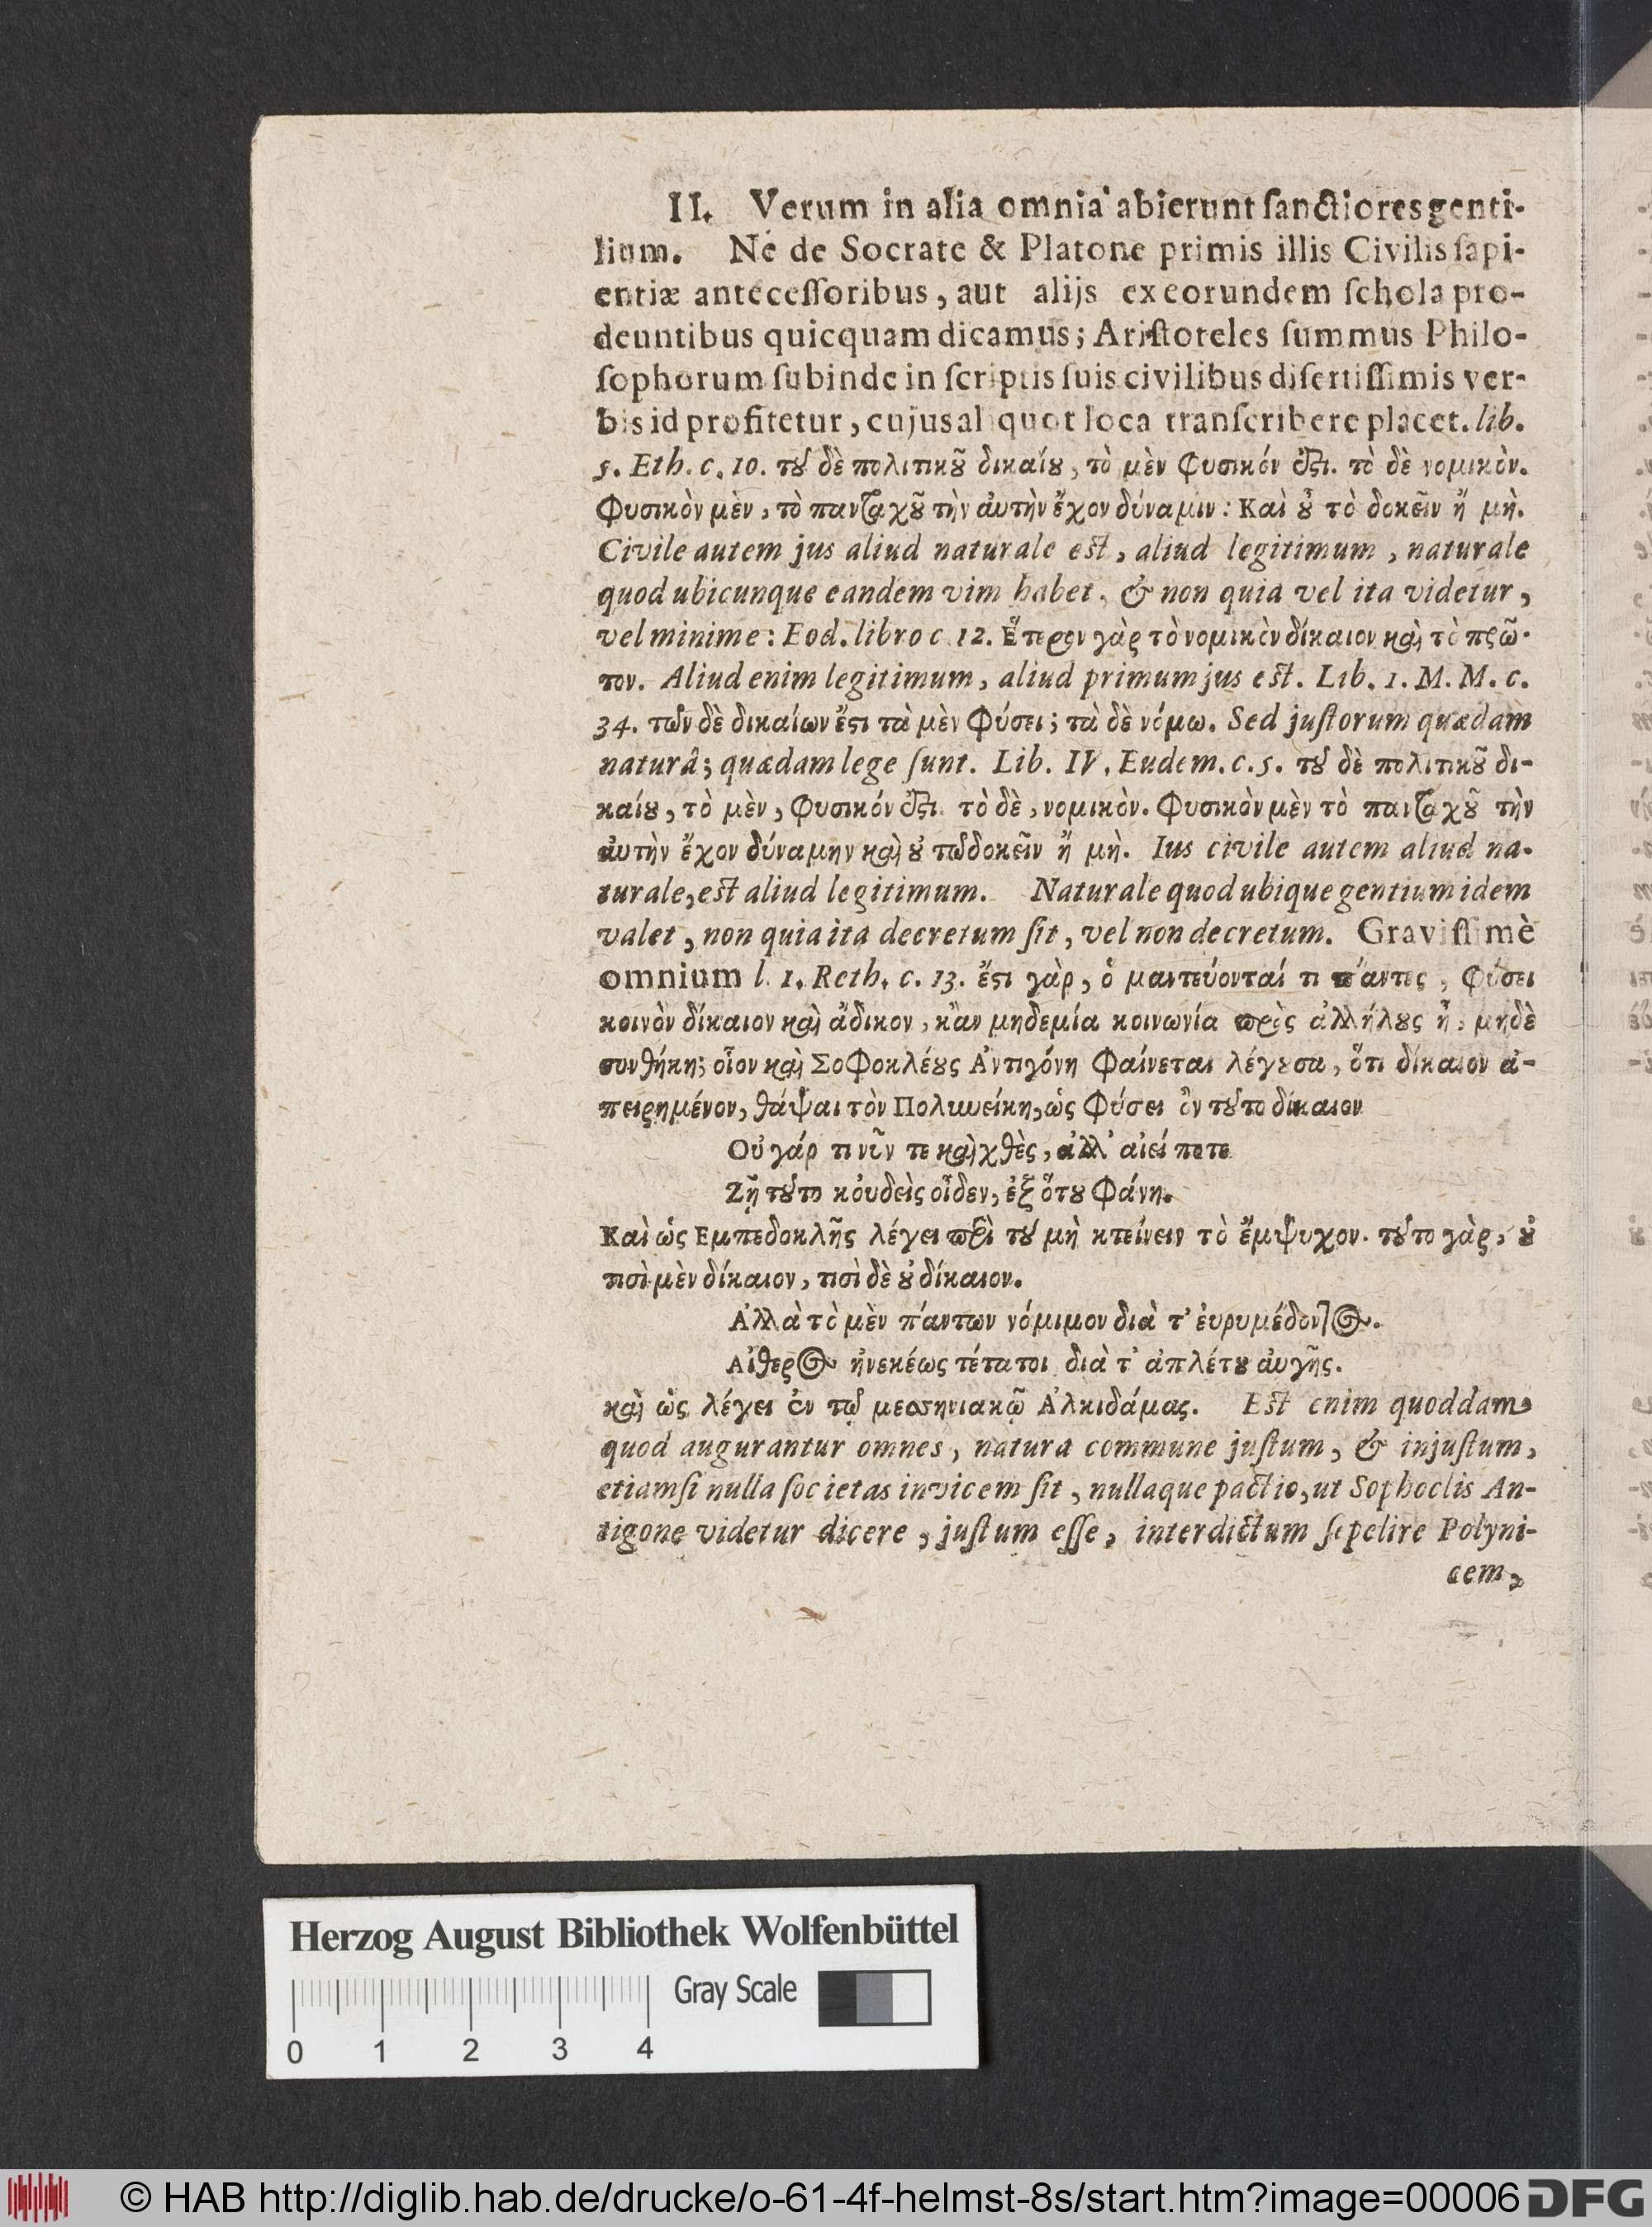 II. Verum in alia omnia abierunt ſanctiores genti-
lium. Ne de Socrate & Platone primis illis Civilis ſapi-
entiæ anteceſſoribus, aut alijs ex eorundem ſchola pro-
deuntibus quicquam dicamus; Ariſtoteles ſummus Philo-
ſophorum ſubinde in ſcriptis ſuis civilibus diſertiſſimis ver-
bis id profitetur, cujus aliquot loca tranſcribere placet. lib.
5. Eth. c. 10. τȣ͂ δὲ πολιτικȣ͂ δικαίȣ, τὸ μὲν φυσικόν ἐϛι. τὸ δὲ νομικὸν.
Φυσικὸν μὲν, τὸ πανταχȣ͂ τὴν ἀυτὴν ἔχον δύναμιν: Καὶ ȣ̓ τὸ δοκεῖν ἤ μὴ.
Civile autem jus aliud naturale est, aliud legitimum, naturale
quod ubicunque eandem vim habet, & non quia vel ita videtur,
vel minime: Eod. libro c 12. Ἕτερον γὰρ τὸ νομικὸν δίκαιον καὶ τὸ πρῶ-
τον. Aliud enim legitimum, aliud primum jus est. Lib. 1. M. M. c.
34. τῶν δὲ δικαίων ἔϛι τὰ μὲν φύσει; τὰ δὲ νόμω. Sed juſtorum quædam
naturâ; quædam lege ſunt. Lib. IV. Eudem. c. 5. τȣ͂ δὲ πολιτικȣ͂ δι-
καίȣ, τὸ μὲν, φυσικόν ἐϛι. τὸ δὲ, νομικὸν. Φυσικὸν μὲν τὸ πανταχȣ͂ τὴν
ἀυτὴν ἔχον δύναμην καὶ ȣ̓ τῶ δοκεῖν ἤ μὴ. Ius civile autem aliud na-
turale, est aliud legitimum. Naturale quod ubique gentium idem
valet, non quia ita decretum ſit, vel non decretum. Graviſſimè
omnium l. 1. Reth. c. 13. ἔϛι γὰρ, ὁ μαντεύονταί τι πάντες, φύσει
κοινὸν δίκαιον καὶ ἄδικον, κἂν μηδεμία κοινωνία πρὸς ἀλλήλȣς ἦ, μηδὲ
συνθήκη; οἷον καὶ Σοφοκλέȣς Ἀντιγόνη φαίνεται λέγȣσα, ὅτι δίκαιον ἀ-
πειρημένον, θάψαι τὸν Πολυνείκη, ὡς φύσει ὂν τȣ͂το δίκαιον
Οὐ γάρ τι νῦν τε καὶ χθὲς, ἀλλ' αἰεί ποτε
Ζῇ τȣ͂το κȯυδεὶς οἶδεν, ἐξ ὅτȣ φάνη.
Καὶ ὡς Εμπεδοκλῆς λέγει περὶ τȣ͂ μὴ κτείνειν τὸ ἔμψυχον. τȣ͂το γὰρ, ȣ̓
τισὶ μὲν δίκαιον, τισὶ δὲ ȣ̓ δίκαιον.
Ἀλλὰ τὸ μὲν πάντων νόμιμον διὰ τ' ἐυρυμέδοντος.
Αἰθερος ἠνεκέως τέταται διὰ τ' ἀπλέτȣ ἀυγῆς.
καὶ ὡς λέγει ἐν τῷ μεσσηνιακῷ Ἀλκιδάμας. Est enim quoddam
quod augurantur omnes, natura commune juſtum, & injuſtum,
etiamſi nulla ſocietas invicem ſit, nullaque pactio, ut Sophoclis An-
tigone videtur dicere, juſtum eſſe, interdictum ſepelire Polyni-
cem,
Herzog August Bibliothek Wolfenbüttel
Gray Scale
0 1 2 3 4
© HAB http://diglib.hab.de/drucke/o-61-4f-helmst-8s/start.htm?image=00006 DFG